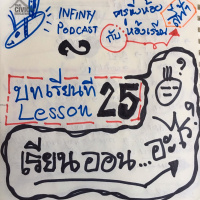 INFINITY
PODCAST
2
ครูพี่น้อง
กับ ห้องเรียน
บทเรียนที่
Lesson 25
เรียน ออน... อะไร?